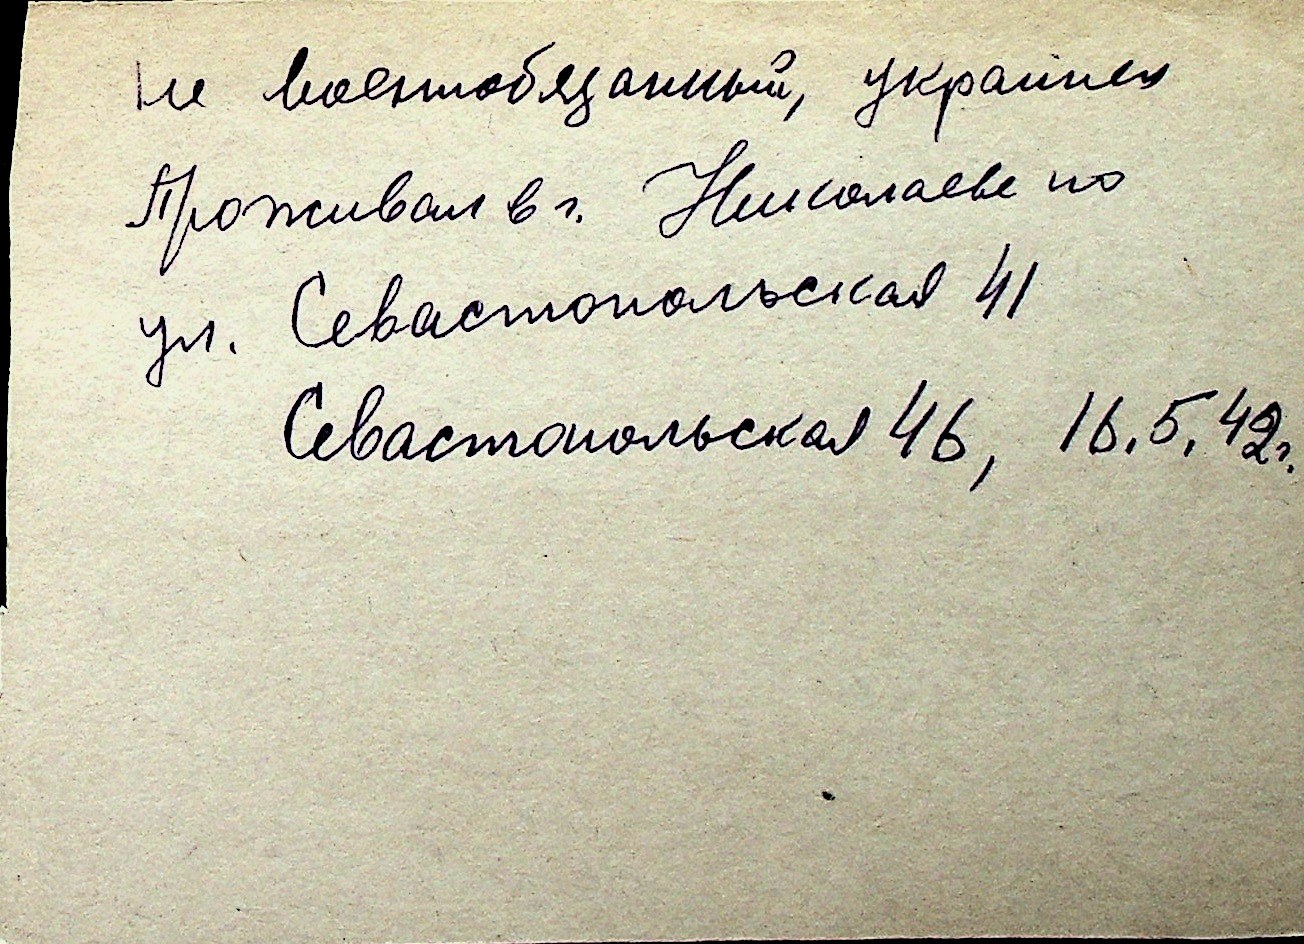 Не военнообязанный, украинец
Проживал в г. Николаеве по
ул. Севастопольская 41
Севастопольская 46, 16.5.42г.